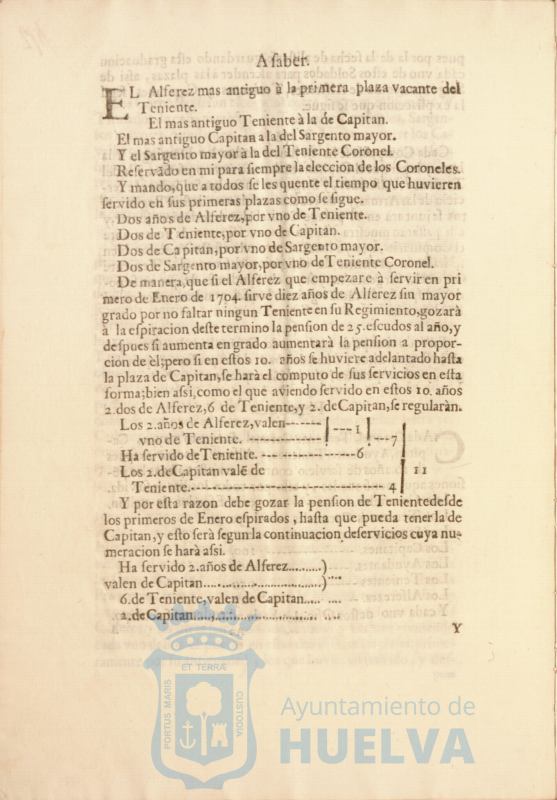 A saber.
EL Alferez mas antiguo à la primera plaza vacante del
Teniente.
El mas antiguo Teniente à la de Capitan.
El mas antiguo Capitan a la del Sargento mayor.
Y el Sargento mayor à la del Teniente Coronel.
Reservãdo en mi para siempre la eleccion de los Coroneles.
Y mando, que a todos se les quente el tiempo que huvieren
servido en sus primeras plazas como se sigue.
Dos años de Alferez, por vno de Teniente.
Dos de Teniente, por vno de Capitan.
Dos de Capitan, por vno de Sargento mayor.
Dos de Sargento mayor, por vno de Teniente Coronel.
De manera, que si el Alferez que empezare à servir en pri
mero de Enero de 1704. sirve diez años de Alferez sin mayor
grado por no faltar ningun Teniente en su Regimiento, gozarà
à la espiracion deste termino la pension de 25. escudos al año, y
despues si aumenta en grado aumentarà la pension a propor-
cion de èl; pero si en estos 10. años se huviere adelantado hasta
la plaza de Capitan, se harà el computo de sus servicios en esta
forma; bien assi, como el que aviendo servido en estos 10. años
2. dos de Alferez, 6 de Teniente, y 2. de Capitan, se regularàn.
Los 2. años de Alferez, valen------- ---1
vno de Teniente. ------------- ---7
Ha servido de Teniente. --- -------------6
Los 2. de Capitan valẽ de 11
Teniente.------------------------------------ 4
Y por esta razon debe gozar la pension de Teniente desde
los primeros de Enero espirados, hasta que pueda tener la de
Capitan, y esto serà segun la continuacion de servicios cuya nu-
meracion se harà assi.
Ha servido 2. años de Alferez.........)
valen de Capitan..............................)....
6. de Teniente, valen de Capitan..... ....
2. de Capitan.............................. ....
Y
PORTUS MARIS
ET TERRÆ
CUSTODIA
Ayuntamiento de
HUELVA